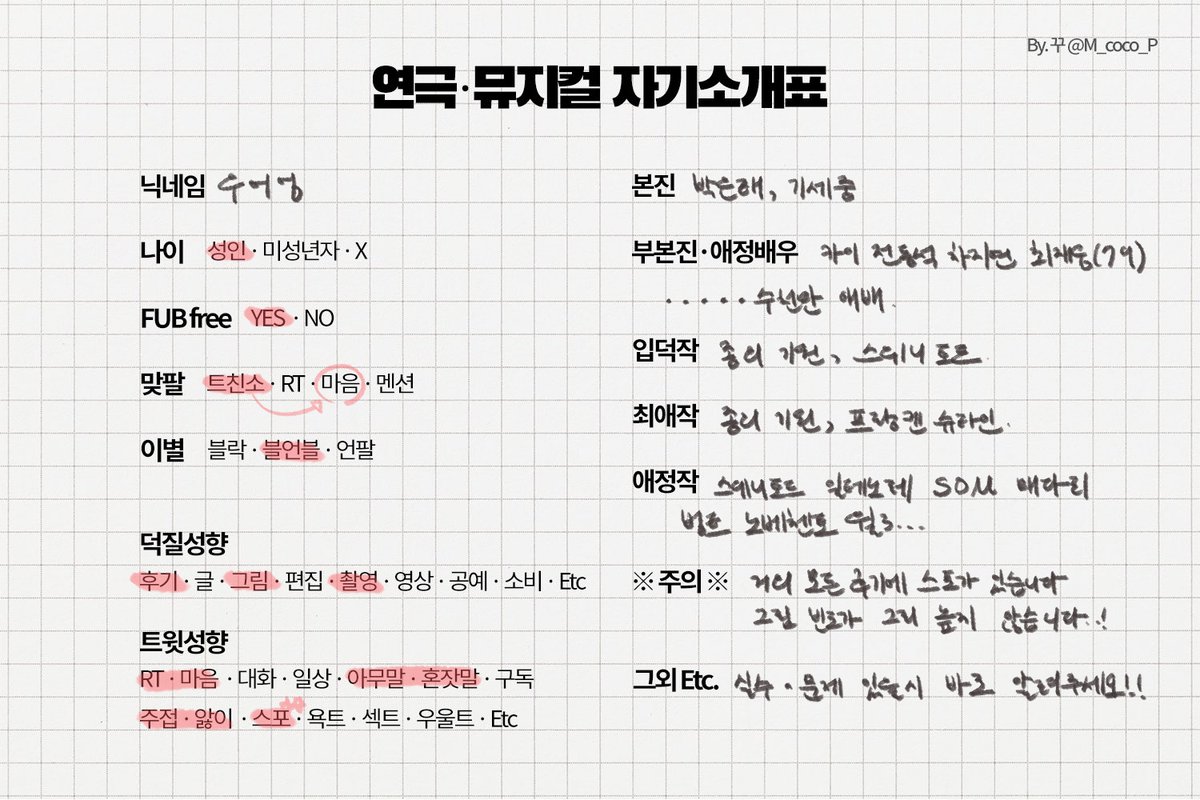 By. 꾸 @M_coco_P
연극·뮤지컬 자기소개표
닉네임 우어엉
나이 성인 · 미성년자 · X
FUB free YES · NO
맞팔 트친소 · RT · 마음 · 멘션
이별 블락 · 블언블 · 언팔
덕질성향
후기 · 글 · 그림 · 편집 · 촬영 · 영상 · 공예 · 소비 · Etc
트윗성향
RT · 마음 · 대화 · 일상 · 아무말 · 혼잣말 · 구독
주접 · 앓이 · 스포 · 욕트 · 섹트 · 우울트 · Etc
본진 박은해, 기세중
부본진·애정배우 카이 전동석 차지연 최재웅(79)
· · · · · 수천만 애배.
입덕작 종의 기원, 스웨니토드
최애작 종의 기원, 프랑켄슈타인.
애정작 스웨니토드 일테노레 SOM 배다리
벌트 노베첸토 ...
※ 주의 ※ 거의 모든 후기에 스포가 있습니다
그림 빈도가 그리 높지 않습니다..!
그외 Etc. 실수 · 문제 있을시 바로 알려주세요!!